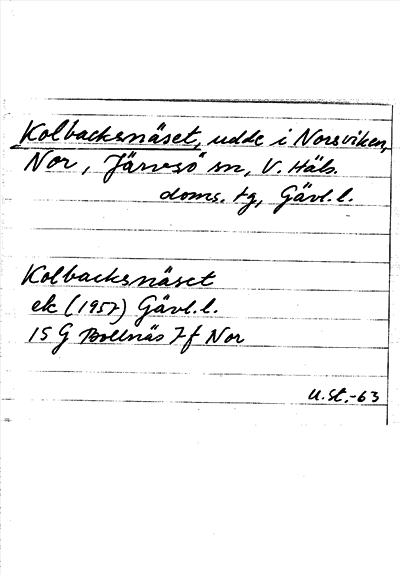 Kolbacksnäset, udde i Norsviken,
Nor, Järvsö sn, V. Häls.
doms. tg, Gävl. l.
Kolbacksnäset
ek (1957) Gävl. l.
15 G Bollnäs 7f Nor
U.St.-63